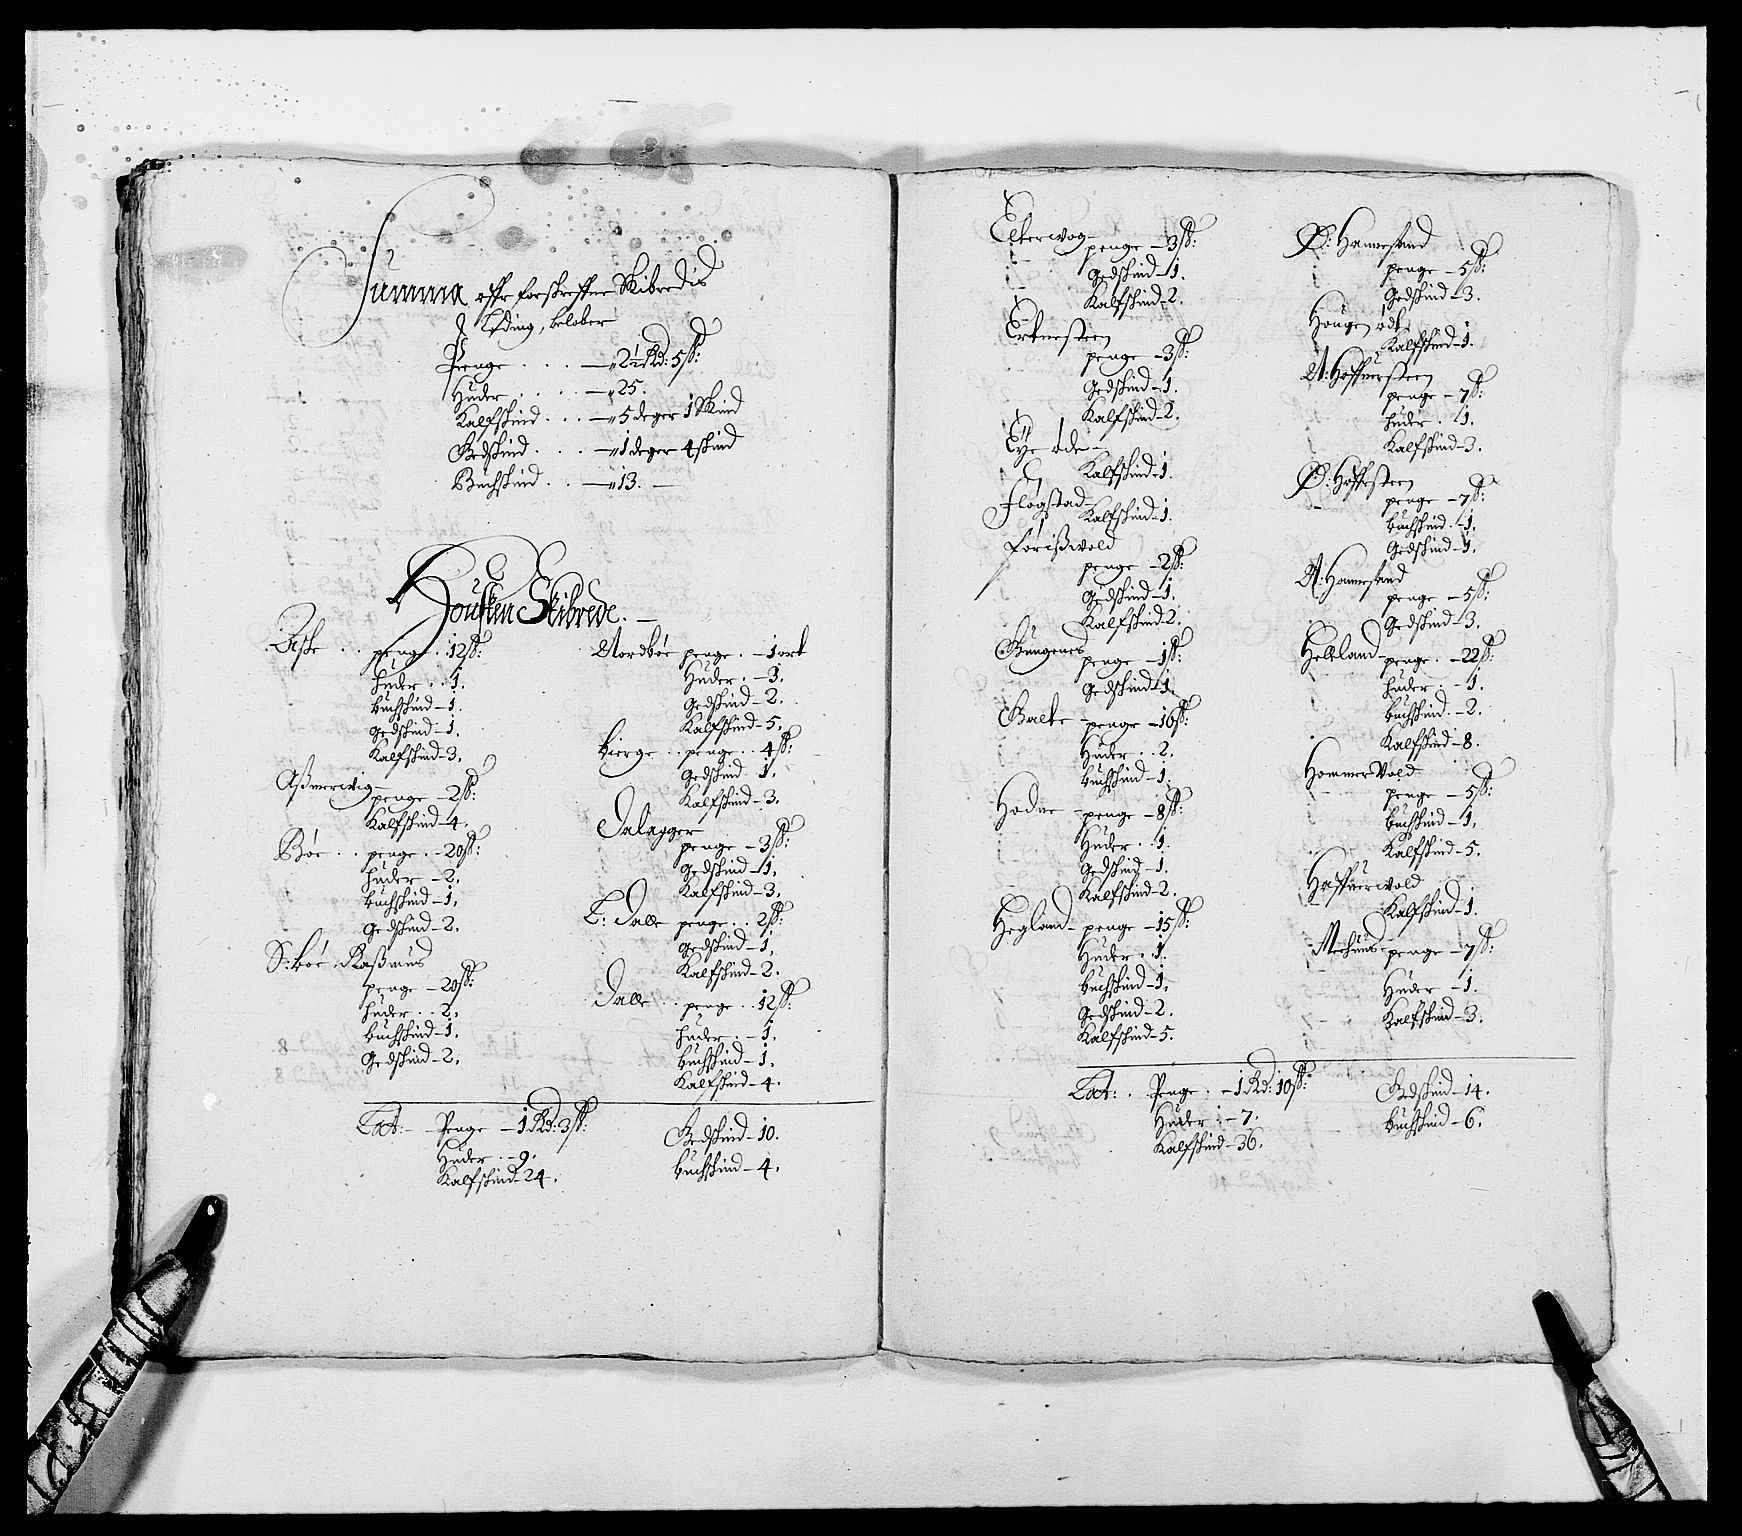 Summa effr forskreffne Skibredis
Leding, belober
Penge . . . — 2½ Rd: 5ß:
Huder . . . . — 25.
Kalfskind . . . — 5 deger 1 Skind
Gedskind . . . — 1 deger 4 skind
Buchskind . . — 13. —
Housken Skibrede. —
Aske . . penge . 12ß:
huder . . 1.
buchskind – 1.
gedskind – 1.
Kalfskind – 3.
Aßmervig –
penge – 2ß:
Kalfskind – 4.
Bøe . . penge . – 20ß:
huder – 2.
buchskind – 1.
Gedskind – 2.
S: bøe, Raßmus
penge – 20ß:
huder . . 2.
buchskind – 1.
Gedskind – 2.
Nordbøe penge . – 1 ort
Huder . – 3.
Gedskind – 2.
Kalfskind – 5.
bierge . . penge . . 4ß:
Gedskind . 1.
Kalfskind – 3.
Dalagger
penge – 3ß:
Gedskind – 1.
Kalfskind – 3.
L: Dalle penge . . 2ß:
Gedskind – 1.
Kalfskind – 2.
Dalle . . penge . . 12ß:
huder . – 1.
buchskind – 1.
Kalfskind – 4.
Lat: – Penge – 1 Rd: 3ß:
Huder . – 9.
Kalfskind – 24.
Gedskind – 10.
buchskind – 4.
Elterwog –
penge – 3ß:
Gedskind – 1.
Kalfskind – 2.
penge – 3ß:
Gedskind – 1.
Kalfskind – 2.
Eye øde –
Kalfskind – 1.
Flogstad –
Kalfskind – 1.
Forißwold
penge – 2ß:
Gedskind – 1.
Kalfskind – 2.
Gungenes
penge – 1ß:
Gedskind – 1.
Galte – penge – 16ß:
Huder . . 2.
buchskind – 1.
Hodne – penge – 8ß:
Huder . . 1.
Gedskind – 1.
Kalfskind – 2.
Hegland – penge – 15ß:
Huder . . 1.
buchskind – 1.
Gedskind – 2.
Kalfskind – 5.
Ø: Hannesand
penge – 5ß:
Gedskind – 3.
Hougen ødt.
Kalfskind – 1.
penge – 7ß:
huder . 1.
Kalfskind – 3.
Ø: Hoffesteen
penge – 7ß:
buchskind . – 1.
Gedskind – 1.
N: Hannesand
penge – 5ß:
Gedskind – 3.
Helleland – penge . – 22ß:
huder . – 1.
buchskind . – 2.
Kalfskind – 8.
Hommer Vold
penge – 5ß:
buchskind – 1.
Kalfskind – 5.
Haffnerwold
Kalfskind – 1.
Meehuus – penge – 7ß:
Huder . – 1.
Kalfskind – 3.
Lat: . Penge . – 1 Rd: 10ß:
Huder : – 7.
Kalfskind – 36.
Gedskind – 14.
buchskind – 6.